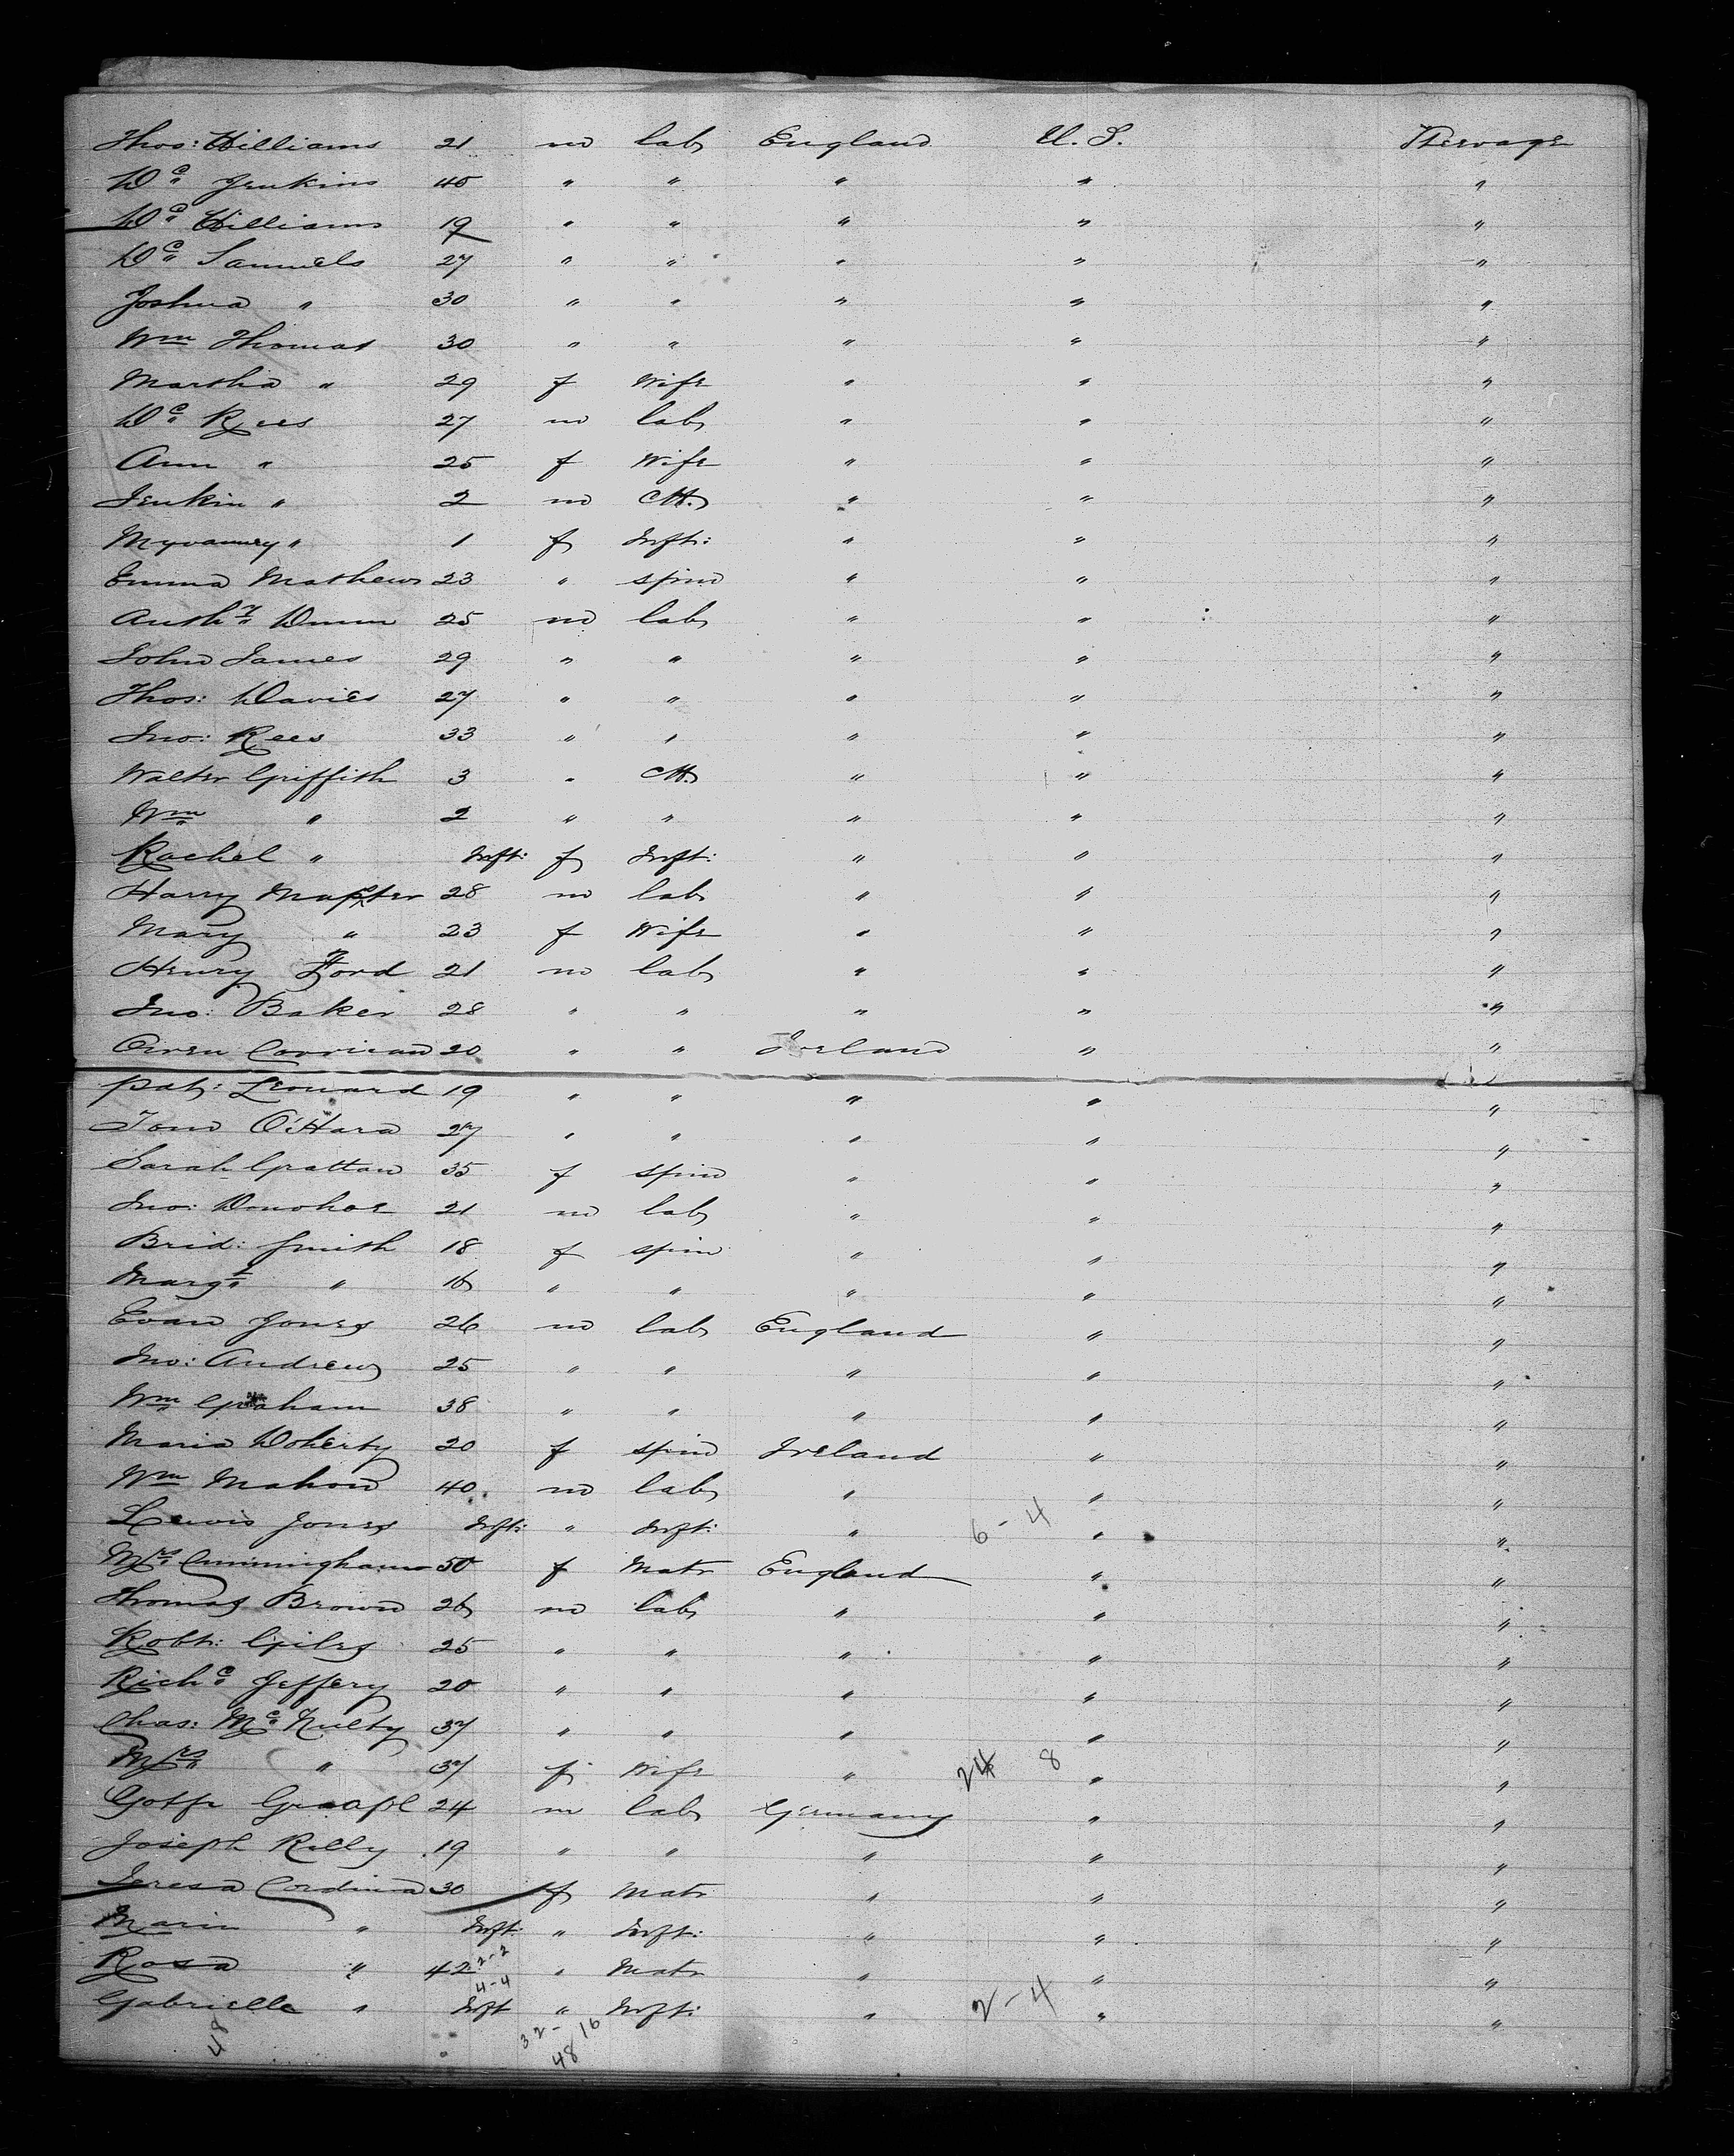 Thos: Williams 21 m lab England U. S. Steerage
Dd Jenkins 45 " " " " "
Dd Williams 19 " " " " "
Dd Samuels 27 " " " " "
Joshua " 30 " " " " "
Wm Thomas 30 " " " " "
Martha " 29 f Wife " " "
Dd Rees 27 m lab " " "
Ann " 25 f Wife " " "
Jenkin " 2 m Ch. " " "
" 1 f Inft: " " "
Emma Mathews 23 " spin " " "
Anthy Dunn 25 m lab " " "
John James 29 " " " " "
Thos: Davies 27 " " " " "
Jno: Rees 33 " " " " "
Walter Griffith 3 " Ch. " " "
Wm " 2 " " " " "
Rachel " Inft: f Inft: " " "
Harry 28 m lab " " "
Mary " 23 f Wife " " "
Henry Ford 21 m lab " " "
Jno: Baker 28 " " " " "
Owen Corrican 20 " " Ireland " "
Pat: Leonard 19 " " " " "
Tom O'Hara 27 " " " " "
Sarah Grattan 35 f spin " " "
Jno: Donohoe 21 m lab " " "
Brid: Smith 18 f spin " " "
Margt " 16 " " " " "
Evan Jones 26 m lab England " "
Jno: Andrews 25 " " " " "
Wm Graham 38 " " " " "
Maria Doherty 20 f spin Ireland " "
Wm Mahon 40 m lab " " "
Lewis Jones Inft: " Inft: " 6-4 " "
Mrs Cunningham 50 f Matr England " "
Thomas Brown 26 m lab " " "
Robt: Giles 25 " " " " "
Richd Jeffery 20 " " " " "
Chas: McNulty 37 " " " " "
Mrs " 37 f Wife " 24 8 " "
Gotfr 24 m lab Germany " "
Joseph Relly 19 " " " " "
Teresa Cordina 30 f Matr " " "
Maria " Inft: " Inft: " " "
Rosa " 42 2-2 " Matr " " "
4-4
Gabrielle " Inft " Inft: " 2-4 " "
48 32-16
48